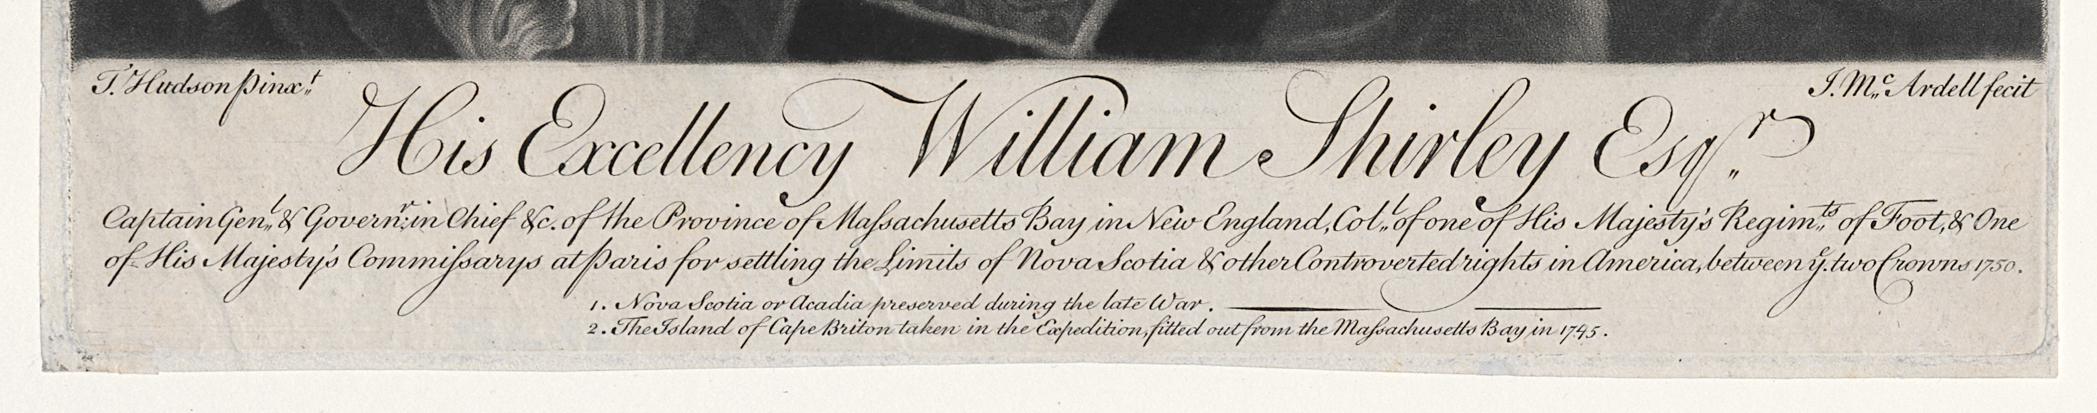 T. Hudson pinx.t
J. Mc. Ardell fecit
His Excellency William Shirley Esq.r
Captain Gen.l & Govern.r in Chief &c. of the Province of Maſsachusetts Bay in New England, Col.l of one of His Majesty's Regim.ts of Foot, & One
of His Majesty's Commiſsarys at Paris for settling the Limits of Nova Scotia & other Controverted rights in America, between y.e two Crowns 1750.
1. Nova Scotia or Acadia preserved during the late War.
2. The Island of Cape Briton taken in the Expedition, fitted out from the Maſsachusetts Bay in 1745.